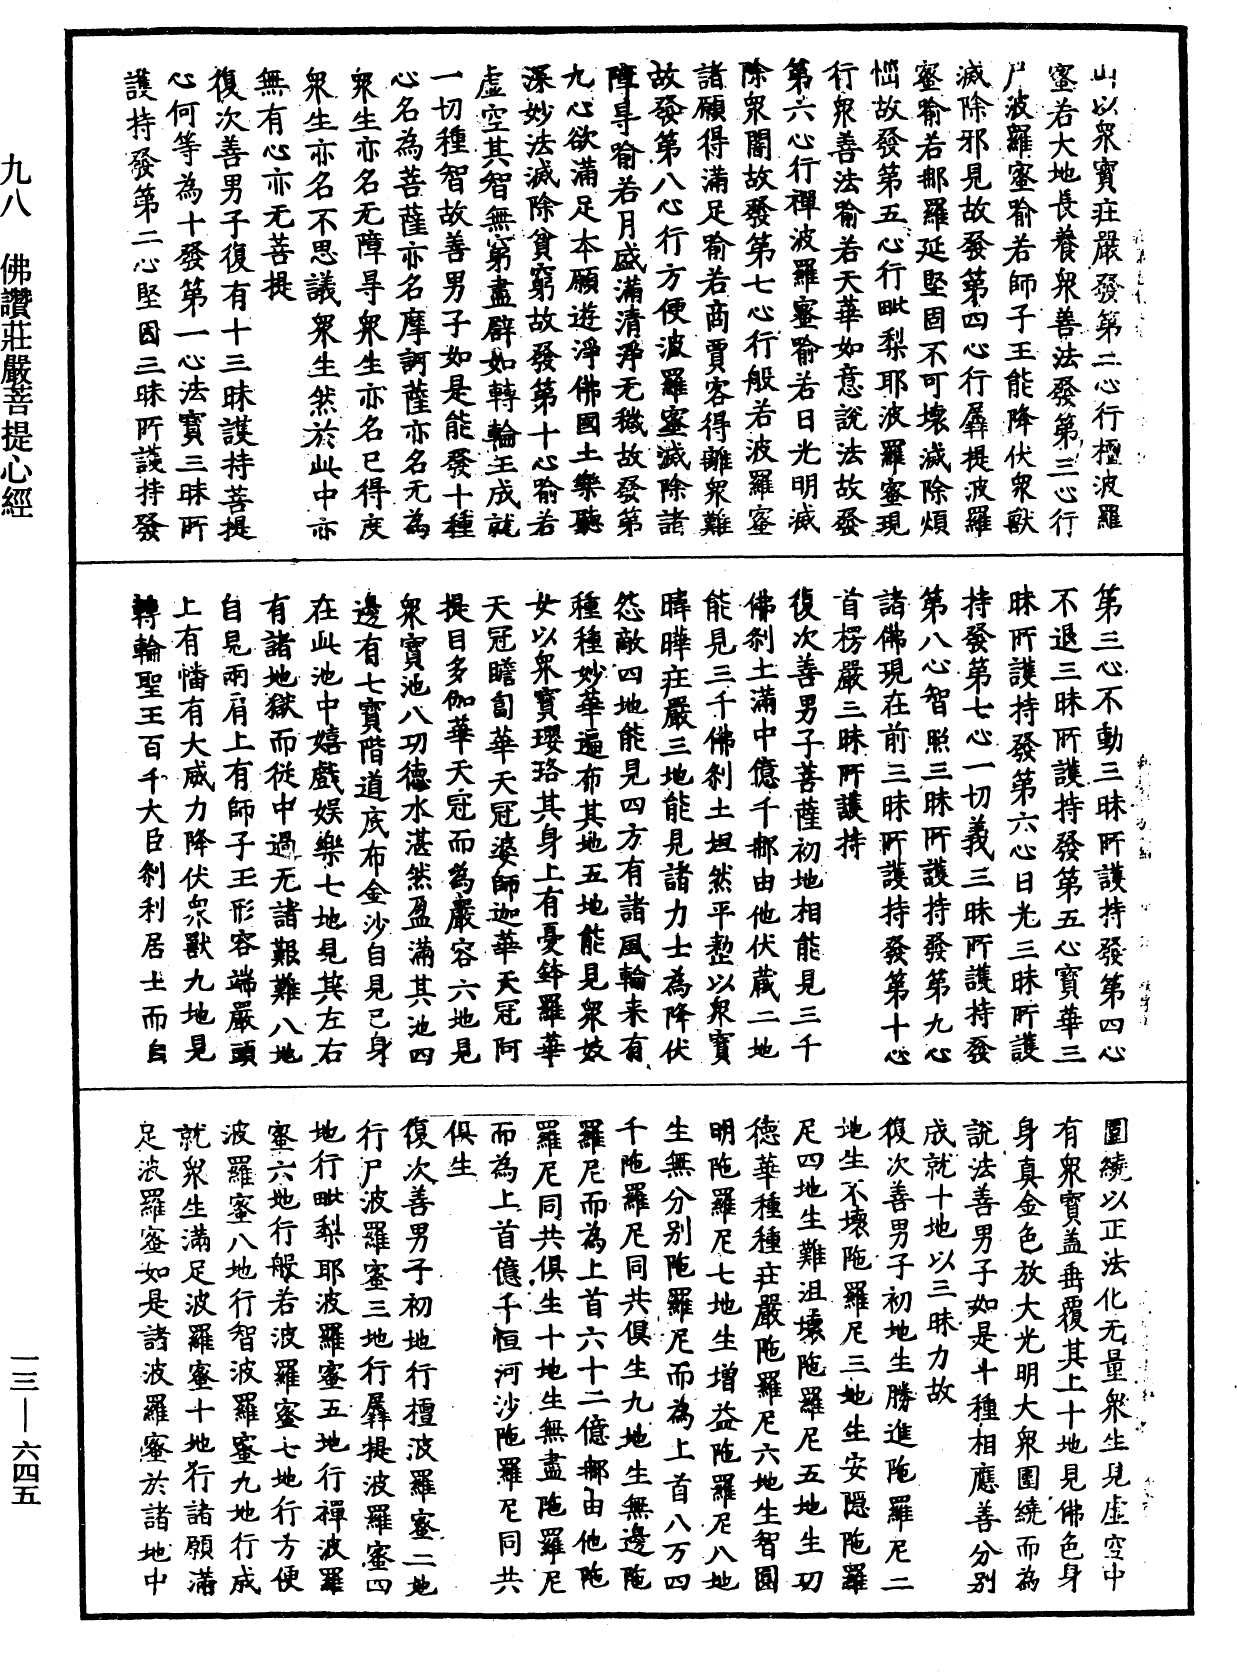 山以衆寶莊嚴發第二心行檀波羅
蜜若大地長養衆善法發第三心行
尸波羅蜜喻若師子王能降伏衆獸
滅除邪見故發第四心行羼提波羅
蜜喻若那羅延堅固不可壞滅除煩
惱故發第五心行毗梨耶波羅蜜現
行衆善法喻若天華如意說法故發
第六心行禪波羅蜜喻若日光明滅
除衆闇故發第七心行般若波羅蜜
諸願得滿足喻若商賈客得離衆難
故發第八心行方便波羅蜜滅除諸
障㝵喻若月盛滿清淨无穢故發第
九心欲滿足本願遊淨佛國土樂聽
深妙法滅除貧窮故發第十心喻若
虛空其智無窮盡辟如轉輪王成就
一切種智故善男子如是能發十種
心名為菩薩亦名摩訶薩亦名无為
衆生亦名无障㝵衆生亦名已得度
衆生亦名不思議衆生然於此中亦
無有心亦无菩提
復次善男子復有十三昧護持菩提
心何等為十發第一心法寶三昧所
護持發第二心堅固三昧所護持發
第三心不動三昧所護持發第四心
不退三昧所護持發第五心寶華三
昧所護持發第六心日光三昧所護
持發第七心一切義三昧所護持發
第八心智照三昧所護持發第九心
諸佛現在前三昧所護持發第十心
首楞嚴三昧所護持
復次善男子菩薩初地相能見三千
佛剎土滿中億千那由他伏藏二地
能見三千佛剎土坦然平整以衆寶
暐曄莊嚴三地能見諸力士為降伏
怨敵四地能見四方有諸風輪来有
種種妙華遍布其地五地能見衆妓
女以衆寶瓔珞其身上有憂鉢羅華
天冠瞻蔔華天冠婆師迦華天冠阿
提目多伽華天冠而為嚴容六地見
衆寶池八功德水湛然盈滿其池四
邊有七寶階道底布金沙自見己身
在此池中嬉戲娛樂七地見其左右
有諸地獄而從中過无諸艱難八地
自見兩肩上有師子王形容端嚴頭
上有幡有大威力降伏衆獸九地見
轉輪聖王百千大臣剎利居士而自
圍繞以正法化无量衆生見虛空中
有衆寶蓋垂覆其上十地見佛色身
身真金色放大光明大衆圍繞而為
說法善男子如是十種相應善分別
成就十地以三昧力故
復次善男子初地生勝進陁羅尼二
地生不壞陁羅尼三地生安隱陁羅
尼四地生難沮壞陁羅尼五地生功
德華種種莊嚴陁羅尼六地生智圓
明陁羅尼七地生增益陁羅尼八地
生無分別陁羅尼而為上首八万四
千陁羅尼同共俱生九地生無邊陁
羅尼而為上首六十二億那由他陁
羅尼同共俱生十地生無盡陁羅尼
而為上首億千恒河沙陁羅尼同共
俱生
復次善男子初地行檀波羅蜜二地
行尸波羅蜜三地行羼提波羅蜜四
地行毗梨耶波羅蜜五地行禪波羅
蜜六地行般若波羅蜜七地行方便
波羅蜜八地行智波羅蜜九地行成
就衆生滿足波羅蜜十地行諸願滿
足波羅蜜如是諸波羅蜜於諸地中
九八　佛讚莊嚴菩提心經
一三—六四五